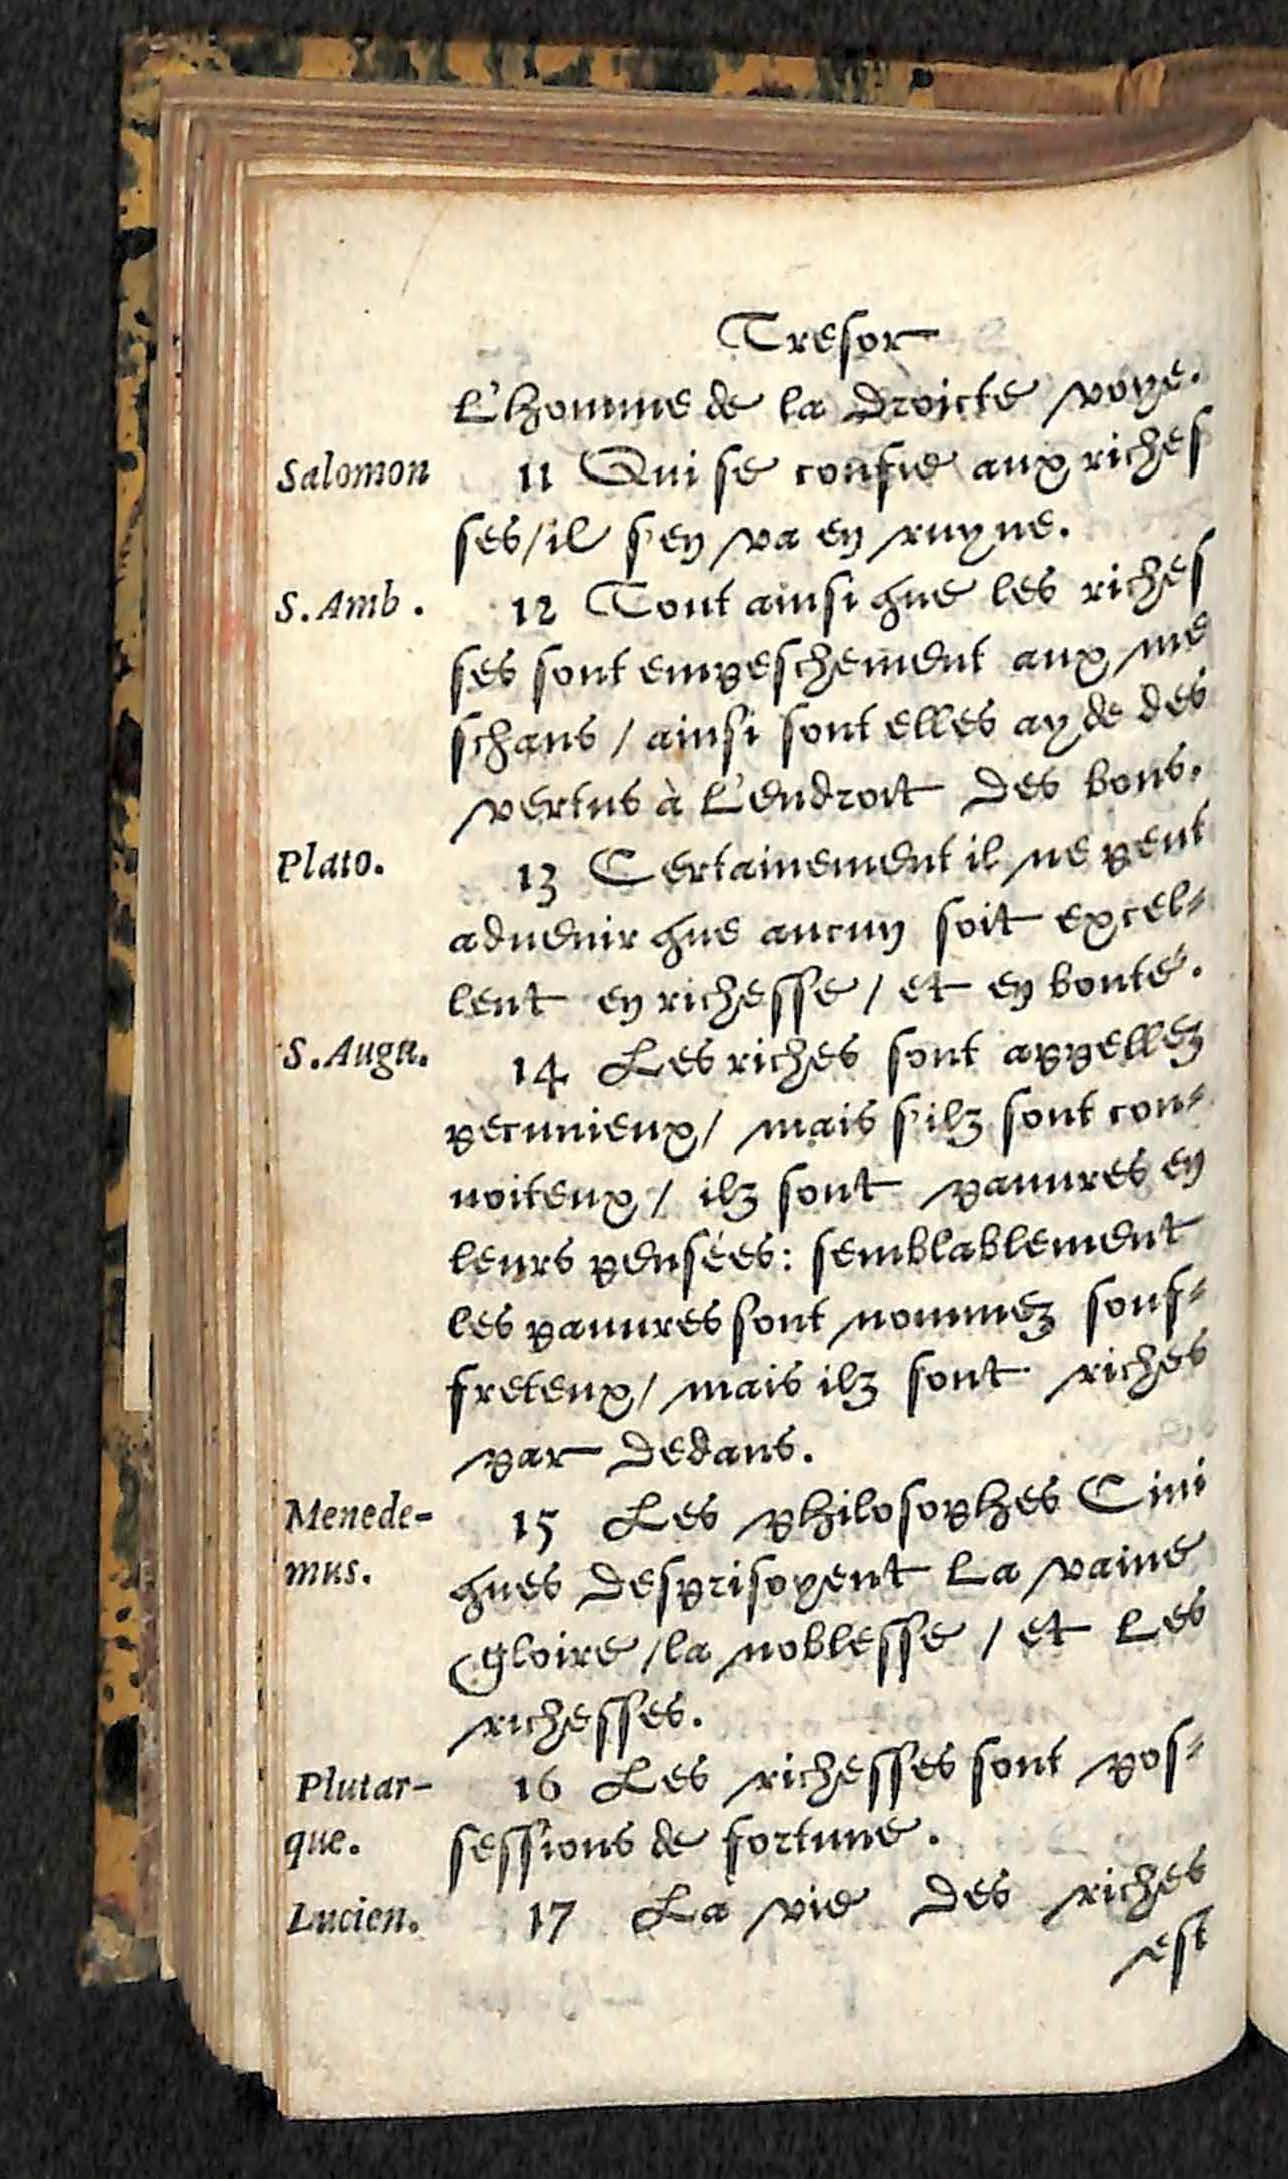 Tresor
l'homme de la droicte voye.
Salomon 11 Qui se confie aux riches
ses / il s'en va en ruyne.
S. Amb. 12 Tout ainsi que les riches
ses sont empeschement aux me
schans / ainsi sont elles ayde des
vertus à l'endroit des bons.
Plato. 13 Certainement il ne peut
aduenir que aucun soit excel-
lent en richesse / et en bonté.
S. Augu. 14 Les riches sont appellez
pecunieux / mais s'ilz sont con-
uoiteux / ilz sont pauures en
leurs pensées: semblablement
les pauures sont nommez souf-
freteux / mais ilz sont riches
par dedans.
Menede- 15 Les philosophes Cini
mus. ques desprisoyent la vaine
gloire / la noblesse / et les
richesses.
Plutar- 16 Les richesses sont pos-
que. sessions de fortune.
Lucien. 17 La vie des riches
est